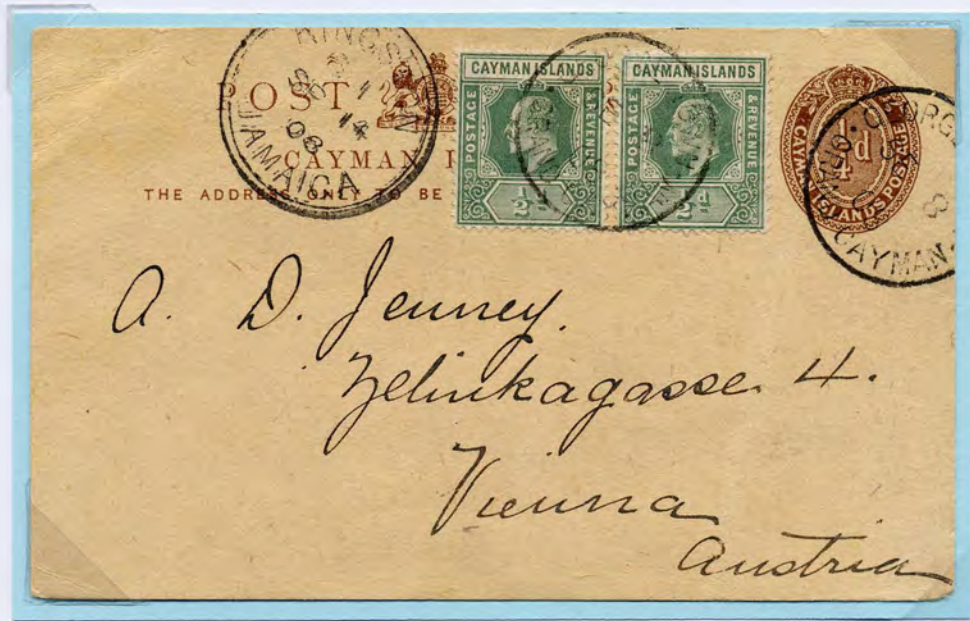 KINGSTON
JAMAICA
08
POST
CAYMAN
THE ADDRESS ONLY TO BE
CAYMAN ISLANDS
POSTAGE & REVENUE
½d
CAYMAN ISLANDS
POSTAGE & REVENUE
½d
CAYMAN ISLANDS POSTAGE
¼d
CAYMAN
A. D. Jenney.
Zelinkagasse 4.
Vienna
Austria